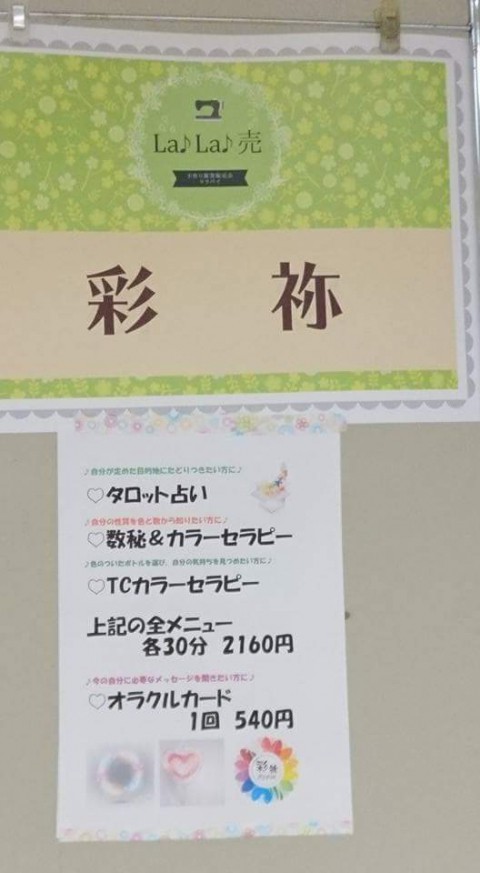 La♪La♪売
彩 祢
♪自分が定めた目的地にたどりつきたい方に♪
♡タロット占い
♪自分の性質を色と数から知りたい方に♪
♡数秘&カラーセラピー
♪色のついたボトルを選び、自分の気持ちを見つめたい方に♪
♡TCカラーセラピー
上記の全メニュー
各30分 2160円
♪今の自分に必要なメッセージを聞きたい方に♪
♡オラクルカード
1回 540円
彩祢